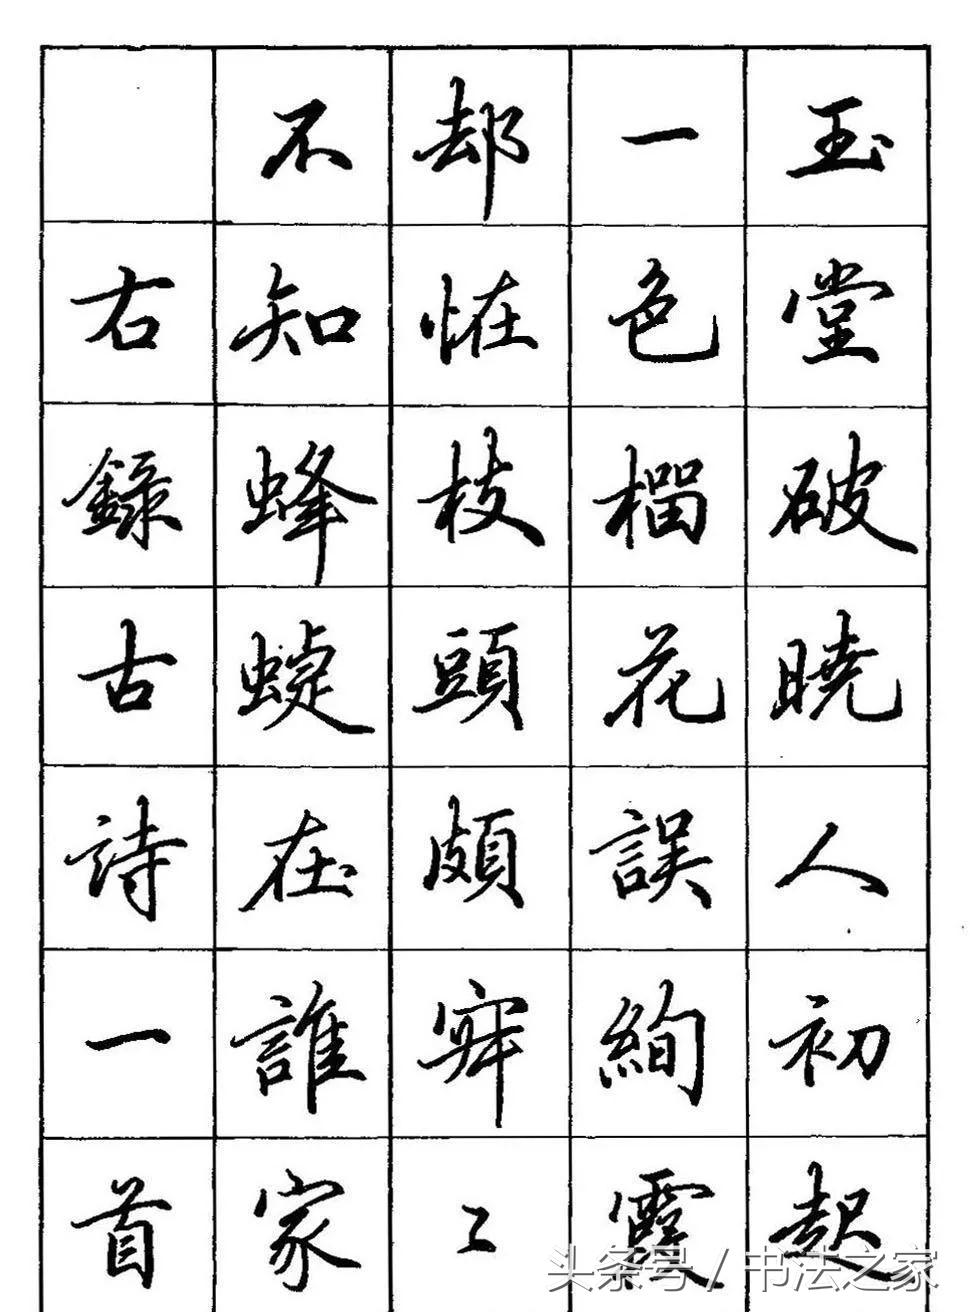 玉堂破曉人初起
一色榴花誤絢霞
却恠枝頭頗寂〻
不知蜂蝶在誰家
右錄古詩一首
头条号 / 书法之家